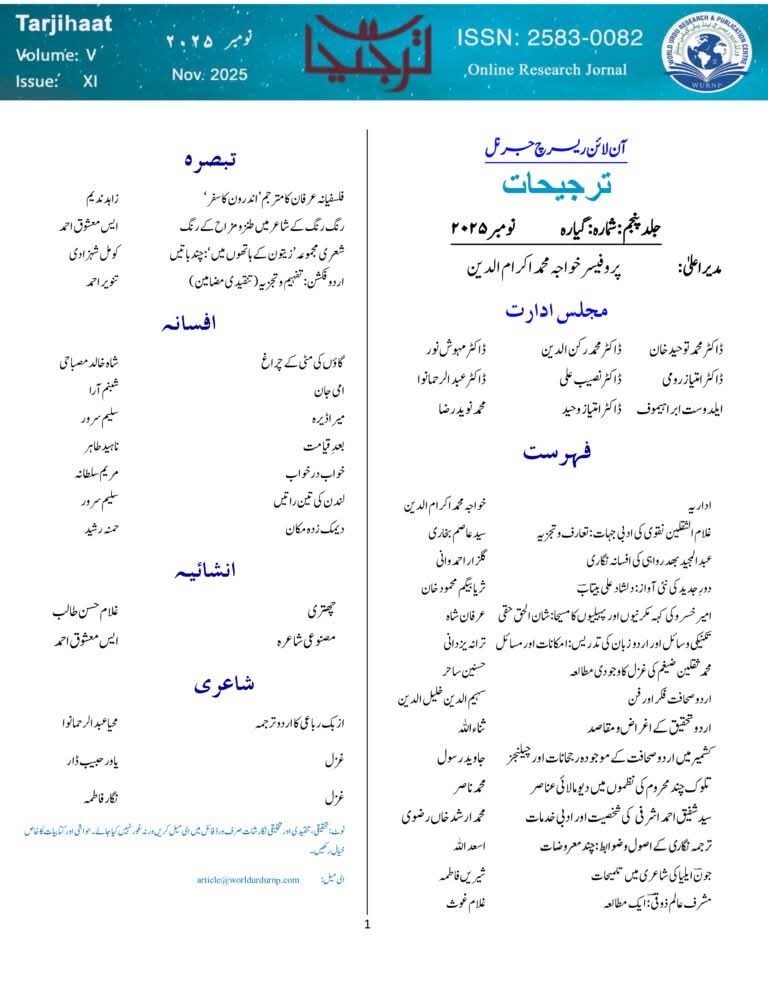 Tarjihaat
Volume: V
Issue: XI
نومبر ۲۰۲۵
Nov. 2025
ترجیحات
ISSN: 2583-0082
Online Research Jornal
WORLD URDU RESEARCH & PUBLICATION CENTRE
WURNP
آن لائن ریسرچ جرنل
ترجیحات
جلد پنجم: شمارہ: گیارہ نومبر ۲۰۲۵
مدیر اعلیٰ: پروفیسر خواجہ محمد اکرام الدین
مجلس ادارت
ڈاکٹر محمد توحید خان ڈاکٹر محمد رکن الدین ڈاکٹر مہوش نور
ڈاکٹر امتیاز رومی ڈاکٹر نصیب علی ڈاکٹر عبد الرحمانوا
ایلدوست ابراہیموف ڈاکٹر امتیاز وحید محمد نوید رضا
فہرست
اداریہ خواجہ محمد اکرام الدین
غلام الثقلین نقوی کی ادبی جہات: تعارف و تجزیہ سید عاصم بخاری
عبد المجید بھدرواہی کی افسانہ نگاری گلزار احمد وانی
دورِ جدید کی نئی آواز: دلشاد علی بیتابؔ ثریا بیگم محمود خان
امیر خسرو کی کہہ مکرنیوں اور پہیلیوں کا مسیحا: شان الحق حقی عرفان شاہ
تکنیکی وسائل اور اردو زبان کی تدریس: امکانات اور مسائل ترانہ یزدانی
محمد ثقلین ضیغم کی غزل کا وجودی مطالعہ حسنین ساحر
اردو صحافت فکر اور فن سہیم الدین خلیل الدین
اردو تحقیق کے اغراض و مقاصد ثناء اللہ
کشمیر میں اردو صحافت کے موجودہ رجحانات اور چیلنجز جاوید رسول
تلوک چند محروم کی نظموں میں دیومالائی عناصر محمد ناصر
سید شفیق احمد اشرفی کی شخصیت اور ادبی خدمات محمد ارشد خاں رضوی
ترجمہ نگاری کے اصول و ضوابط: چند معروضات اسعد اللہ
جونؔ ایلیا کی شاعری میں تلمیحات شیریں فاطمہ
مشرف عالم ذوقیؔ: ایک مطالعہ غلام غوث
تبصرہ
فلسفیانہ عرفان کا مترجم ’اندرون کا سفر‘ زاہد ندیم
رنگ رنگ کے شاعر میں طنز و مزاح کے رنگ ایس معشوق احمد
شعری مجموعہ ’زیتون کے ہاتھوں میں‘: چند باتیں کومل شہزادی
اردو فکشن: تفہیم و تجزیہ (تنقیدی مضامین) تنویر احمد
افسانہ
گاؤں کی مٹی کے چراغ شاہ خالد مصباحی
امی جان شبنم آرا
میرا ڈیرہ سلیم سرور
بعد قیامت ناہید طاہر
خواب در خواب مریم سلطانہ
لندن کی تین راتیں سلیم سرور
دیمک زدہ مکان حمنہ رشید
انشائیہ
چھتری غلام حسن طالب
مصنوعی شاعرہ ایس معشوق احمد
شاعری
ازبک رباعی کا اردو ترجمہ محیا عبد الرحمانوا
غزل یاور حبیب ڈار
غزل نگار فاطمہ
نوٹ: تحقیقی، تنقیدی اور تخلیقی نگارشات صرف ورڈ فائل میں ای میل کریں ورنہ غور نہیں کیا جائے۔ حواشی اور کتابیات کا خاص
خیال رکھیں۔
ای میل: article@worldurdurnp.com
1